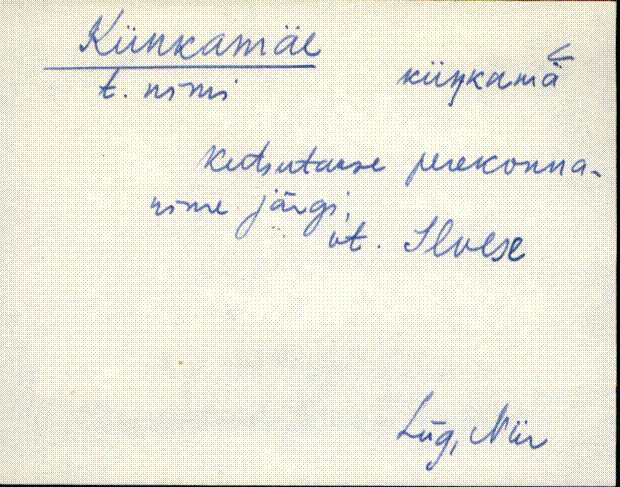 Kiinkamäe
t. nimi kiiŋkamä
Kutsutakse perekonna-
nime järgi,
vt. Ilvese
Lüg, Niir